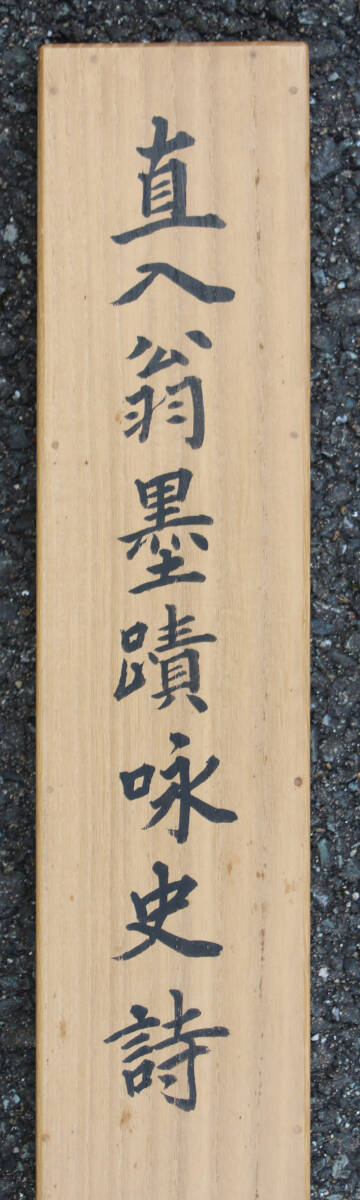 直入翁墨蹟咏史詩